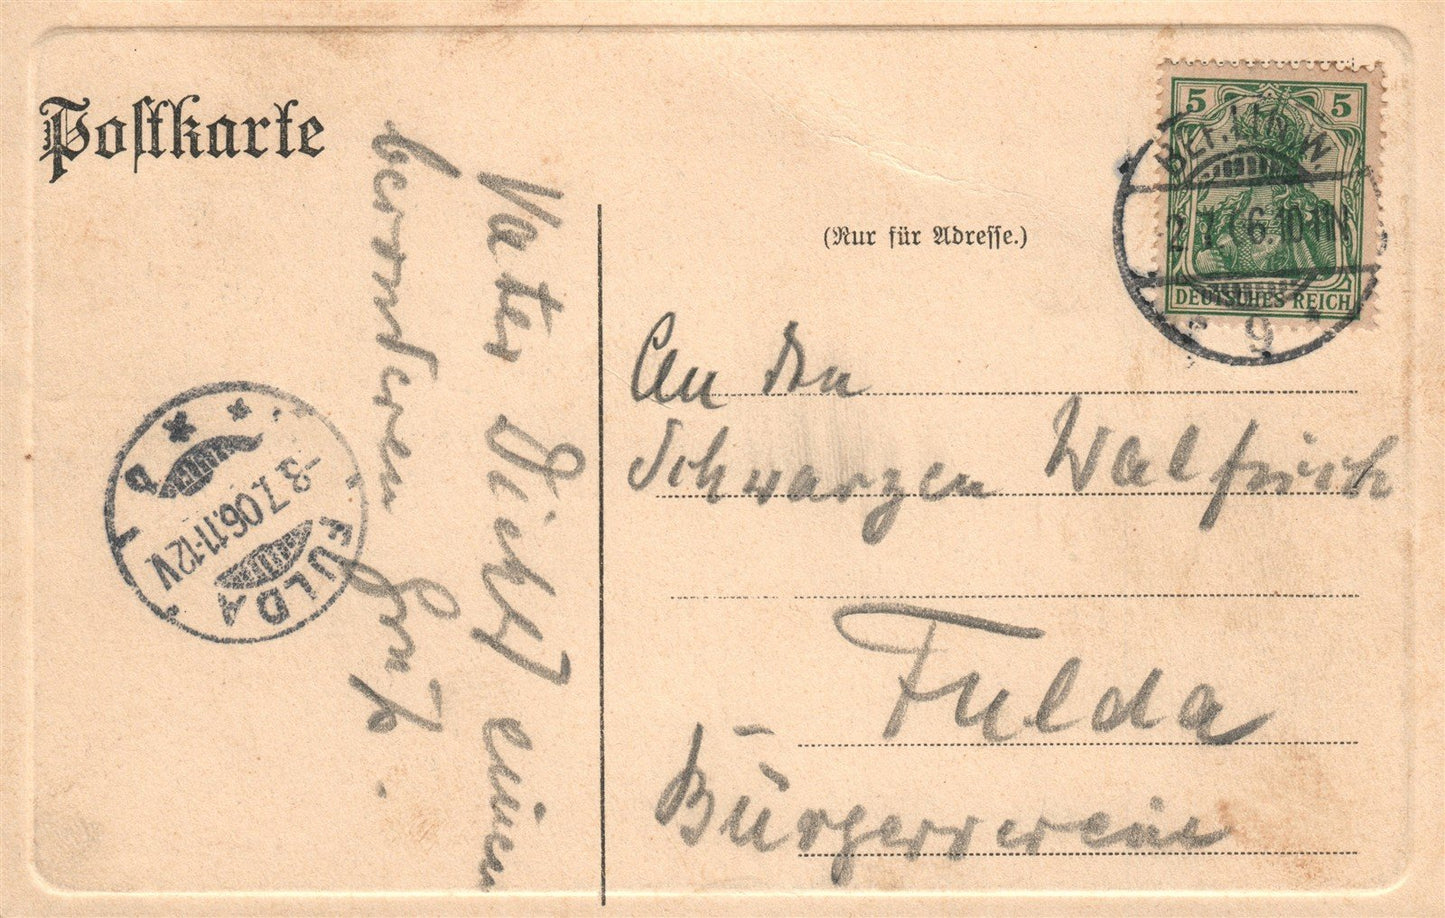 Postkarte
(Nur für Adresse.)
5 5
DEUTSCHES REICH
BERLIN W.
2.7.06.10-11N
9
An den
Schwarzen Walfisch
Fulda
Bürgerverein
Vater Dicht einen
besonderen Gruß.
FULDA
-3.7.06.11-12V.